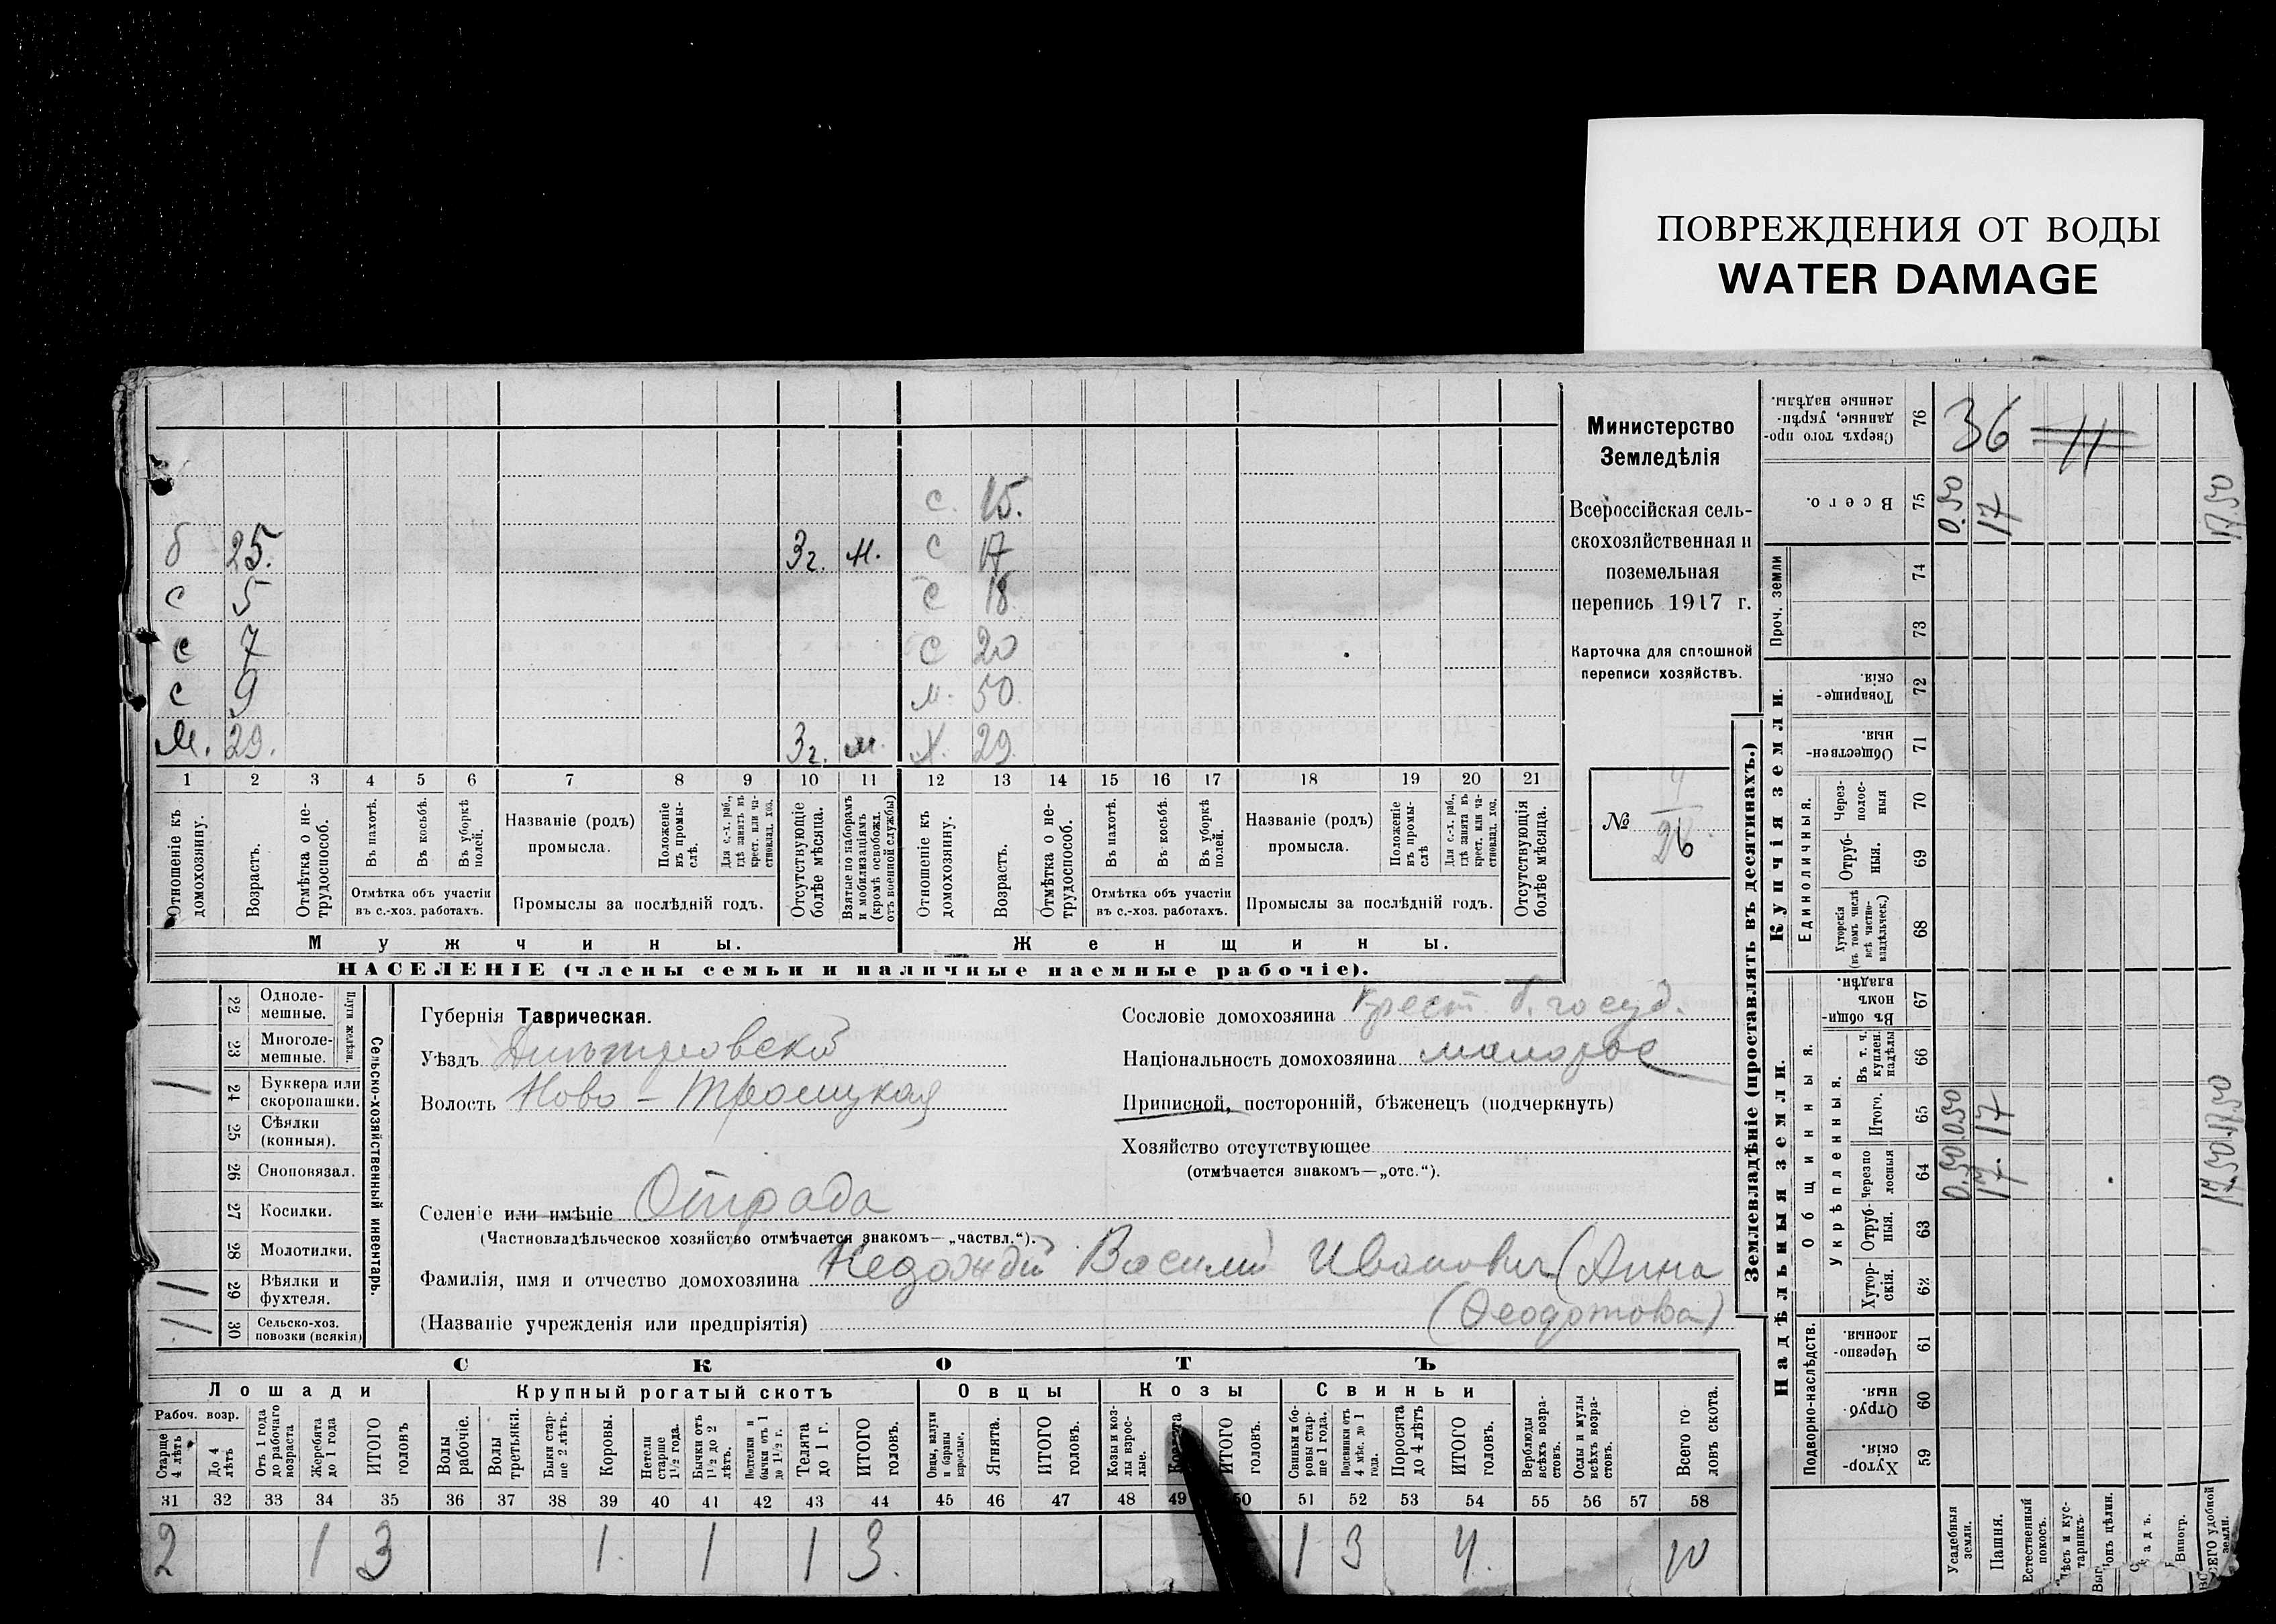 ПОВРЕЖДЕНИЯ ОТ ВОДЫ
WATER DAMAGE
Министерство
Земледѣлія
Всероссійская сель-
скохозяйственная и
поземельная
перепись 1917 г.
Карточка для сплошной
переписи хозяйствъ.
№ 4
26
с. 15.
б 25. 3г. м. с 17
с 5 с 18
с 7 с 20
с 9 м. 50
м. 29. 3г. м. х. 29
1 2 3 4 5 6 7 8 9 10 11 12 13 14 15 16 17 18 19 20 21
Отношеніе къ домохозяину.
Возрастъ.
Отмѣтка о не-трудоспособ.
Въ пахотѣ.
Въ косьбѣ.
Въ уборкѣ полей.
Отмѣтка объ участіи
въ с.-хоз. работахъ.
Названіе (родъ)
промысла.
Положеніе въ промы-слѣ.
Для с.-х. раб., гдѣ занятъ въ крест. или ча-стновлад. хоз.
Промыслы за послѣдній годъ.
Отсутствующіе болѣе мѣсяца.
Взятые по наборамъ и мобилизаціямъ (кромѣ освобожд. отъ военной службы)
Отношеніе къ домохозяину.
Возрастъ.
Отмѣтка о не-трудоспособ.
Въ пахотѣ.
Въ косьбѣ.
Въ уборкѣ полей.
Отмѣтка объ участіи
въ с.-хоз. работахъ.
Названіе (родъ)
промысла.
Положеніе въ промы-слѣ
Для с.-х. раб., гдѣ занята въ крест. или ча-стновлад. хоз.
Промыслы за послѣдній годъ.
Отсутствующія болѣе мѣсяца.
Мужчины.
Женщины.
НАСЕЛЕНІЕ (члены семьи и наличные наемные рабочіе).
Сельско-хозяйственный инвентарь.
Плуги желѣзн.
22 Одноле-мешные.
23 Многоле-мешные.
24 Буккера или скоропашки. 1
25 Сѣялки (конныя).
26 Сноповязал.
27 Косилки.
28 Молотилки.
29 Вѣялки и фухтеля. 1
30 Сельско-хоз. повозки (всякія) 1
Губернія Таврическая.
Уѣздъ Днѣпровскій
Волость Ново-Троицкая
Сословіе домохозяина крест. б. госуд.
Національность домохозяина малорос
Приписной, посторонній, бѣженецъ (подчеркнуть)
Хозяйство отсутствующее
(отмѣчается знакомъ—„отс.“).
Селеніе или имѣніе Отрада
(Частновладѣльческое хозяйство отмѣчается знакомъ—„частвл.“).
Фамилія, имя и отчество домохозяина Недождій Василій Ивановичъ (Анна
(Названіе учрежденія или предпріятія) (Феодотова)
СКОТЪ
Лошади Крупный рогатый скотъ Овцы Козы Свиньи
Рабоч. возр.
Старше 4 лѣтъ
До 4 лѣтъ
Отъ 1 года до рабочаго возраста
Жеребята до 1 года
ИТОГО головъ
Волы рабочіе.
Волы третьяки.
Быки стар-ше 2 лѣтъ.
Коровы.
Нетели старше 1½ года.
Бычки отъ 1½ до 2 лѣтъ.
Подтелки и бычки отъ 1 до 1½ г.
Телята до 1 г.
ИТОГО головъ.
Овцы, валухи и бараны взрослые.
Ягнята.
ИТОГО головъ.
Козы и коз-лы взрос-лые.
ИТОГО головъ.
Свиньи и бо-ровы стар-ше 1 года.
Подсвинки отъ 4 мѣс. до 1 года.
Поросята до 4 лѣтъ
ИТОГО головъ.
Верблюды всѣхъ возра-стовъ.
Ослы и мулы всѣхъ возра-стовъ.
Всего го-ловъ скота.
31 32 33 34 35 36 37 38 39 40 41 42 43 44 45 46 47 48 49 50 51 52 53 54 55 56 57 58
2 1 3 1. 1 1 3. 1 3 4. 10
Землевладѣніе (проставлять въ десятинахъ.)
Надѣльныя земли.
Купчія земли.
Проч. земли
Подворно-наслѣдств.
Общинныя.
Укрѣпленныя.
Единоличныя.
76 Сверхъ того про-данные, укрѣп-ленные надѣлы. 36 11
75 Всего. 0.50 17 17.50
74
73
72 Товарище-скія.
71 Обществен-ныя.
70 Через-полос-ныя
69 Отруб-ныя.
68 Хуторскія (въ томъ числѣ всѣ частно-владѣльческ.)
67 Въ общин-номъ владѣн.
66 Въ т. ч. куплен. надѣлы
65 Итого. 0.50 17 17.50
64 Черезпо лосныя 0.50 17. 17.50
63 Отруб-ныя.
62 Хутор-скія.
61 Черезпо-лосныя.
60 Отруб-ныя.
59 Хутор-скія.
Усадебныя земли.
Пашня.
Естественный покосъ.
Виногр.